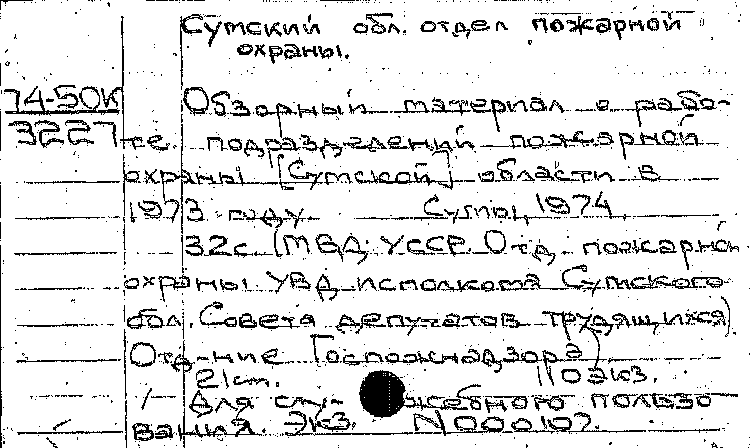 Сумский обл. отдел пожарной
охраны.
74-50К
3227
Обзорный материал о рабо-
те подразделений пожарной
охраны [Сумской] области в
1973 году. Сумы, 1974.
32с. (МВД УССР. Отд. пожарной
охраны УВД исполкома Сумского
обл. Совета депутатов трудящихся)
Отд-ние Госпожнадзора)
21см. 110экз.
Для слу-жебного пользо
вания. Экз. N000107.